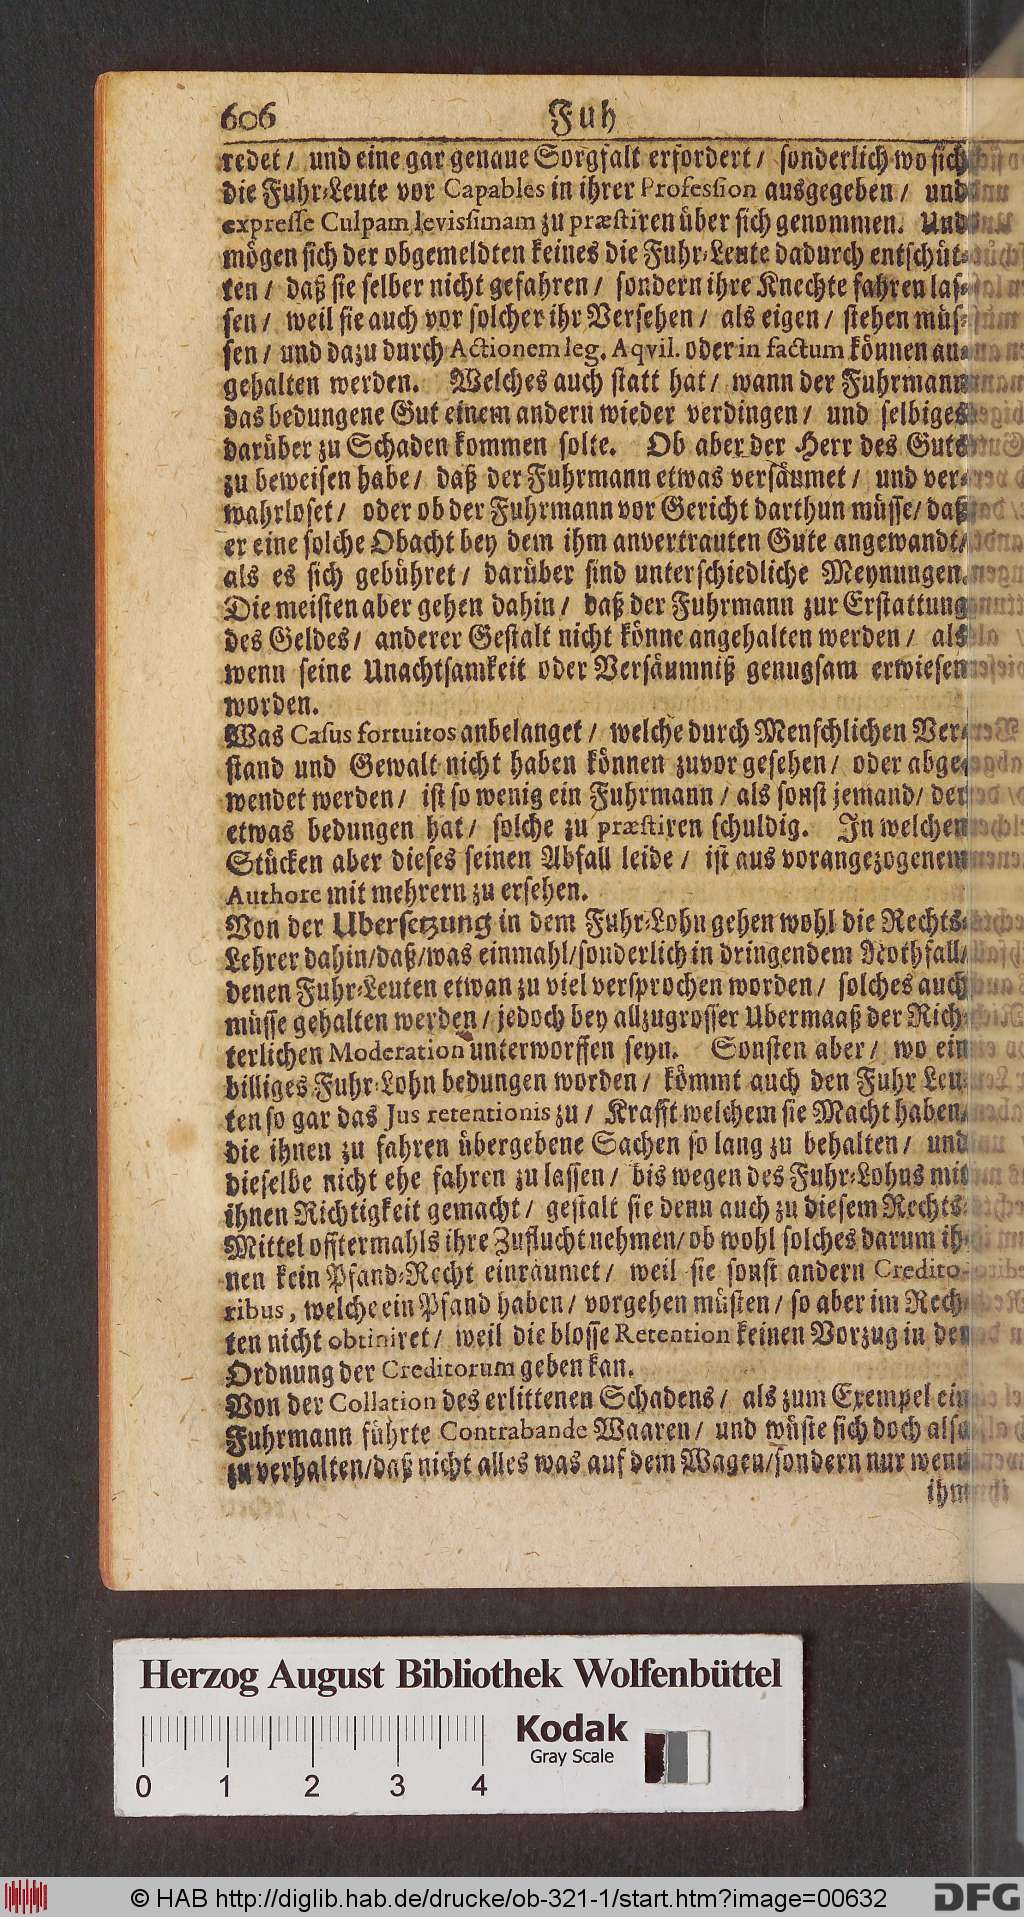 606 Fuh
redet / und eine gar genaue Sorgfalt erfordert / sonderlich wo sich
die Fuhr-Leute vor Capables in ihrer Profession ausgegeben / und
expresse Culpam levissimam zu præstiren über sich genommen. Und
mögen sich der obgemeldten keines die Fuhr-Leute dadurch entschüt-
ten / daß sie selber nicht gefahren / sondern ihre Knechte fahren las-
sen / weil sie auch vor solcher ihr Versehen / als eigen / stehen müs-
sen / und dazu durch Actionem leg. Aqvil. oder in factum können an-
gehalten werden. Welches auch statt hat / wann der Fuhrmann
das bedungene Gut einem andern wieder verdingen / und selbiges
darüber zu Schaden kommen solte. Ob aber der Herr des Guts
zu beweisen habe / daß der Fuhrmann etwas versäumet / und ver-
wahrloset / oder ob der Fuhrmann vor Gericht darthun müsse / daß
er eine solche Obacht bey dem ihm anvertrauten Gute angewandt /
als es sich gebühret / darüber sind unterschiedliche Meynungen.
Die meisten aber gehen dahin / daß der Fuhrmann zur Erstattung
des Geldes / anderer Gestalt nicht könne angehalten werden / als
wenn seine Unachtsamkeit oder Versäumniß genugsam erwiesen
worden.
Was Casus fortuitos anbelanget / welche durch Menschlichen Ver-
stand und Gewalt nicht haben können zuvor gesehen / oder abge-
wendet werden / ist so wenig ein Fuhrmann / als sonst jemand / der
etwas bedungen hat / solche zu præstiren schuldig. In welchen
Stücken aber dieses seinen Abfall leide / ist aus vorangezogenem
Authore mit mehrern zu ersehen.
Von der Ubersetzung in dem Fuhr-Lohn gehen wohl die Rechts-
Lehrer dahin / daß / was einmahl / sonderlich in dringendem Nothfall /
denen Fuhr-Leuten etwan zu viel versprochen worden / solches auch
müsse gehalten werden / jedoch bey allzugrosser Ubermaaß der Rich-
terlichen Moderation unterworffen seyn. Sonsten aber / wo ein
billiges Fuhr-Lohn bedungen worden / kömmt auch den Fuhr Leu-
ten so gar das Jus retentionis zu / Krafft welchem sie Macht haben /
die ihnen zu fahren übergebene Sachen so lang zu behalten / und
dieselbe nicht ehe fahren zu lassen / bis wegen des Fuhr-Lohns mit
ihnen Richtigkeit gemacht / gestalt sie denn auch zu diesem Rechts-
Mittel offtermahls ihre Zuflucht nehmen / ob wohl solches darum ih-
nen kein Pfand-Recht einräumet / weil sie sonst andern Credito-
ribus, welche ein Pfand haben / vorgehen müsten / so aber im Rech-
ten nicht obtiniret / weil die blosse Retention keinen Vorzug in der
Ordnung der Creditorum geben kan.
Von der Collation des erlittenen Schadens / als zum Exempel ein
Fuhrmann führte Contrabande Waaren / und wüste sich doch also
zu verhalten / daß nicht alles was auf dem Wagen / sondern nur wenn
ihm
Herzog August Bibliothek Wolfenbüttel
Kodak
Gray Scale
0 1 2 3 4
© HAB http://diglib.hab.de/drucke/ob-321-1/start.htm?image=00632
DFG